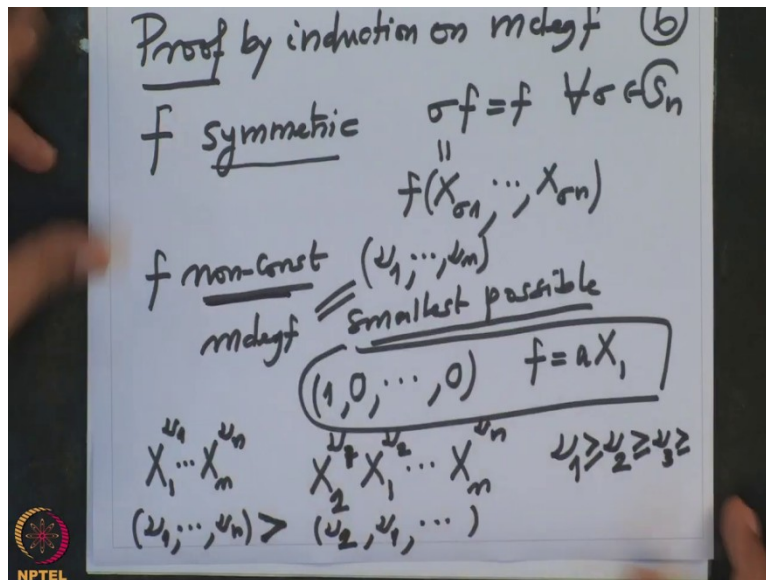 Proof by induction on mdegf ⑥
f symmetric σf = f ∀σ∈S_n
||
f(X_{σ1}, ..., X_{σn})
f non-const (ν_1, ..., ν_n)
mdegf = smallest possible
(1, 0, ..., 0) f = aX_1
X_1^{ν_1} ... X_n^{ν_n} X_2^{ν_1} X_1^{ν_2} ... X_n^{ν_n} ν_1 ≥ ν_2 ≥ ν_3 ≥
(ν_1, ..., ν_n) > (ν_2, ν_1, ...)
NPTEL